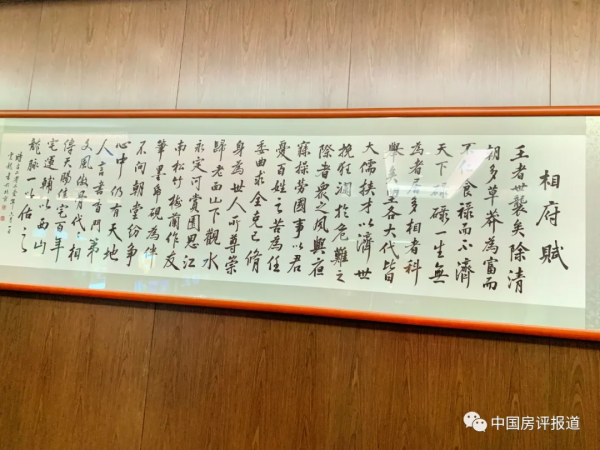 相府賦
王者世襲矣除清
胡多草莽為富而
不仁食祿而不濟
天下碌碌一生無
為者居多相者科
舉各大代皆
大儒扶才以濟世
挽狂瀾於危難之
際普衆之風興夜
寐操勞國事以君
憂百姓之苦為任
委曲求全克己脩
身為世人所尊崇
歸老西山下觀水
永定河賞園思江
南松竹梅蘭作友
筆墨紙硯為伴
不問朝堂紛爭
心中仍有天地
人言書香門第
文風傲月代々相
傳天賜佳宅百年
宅運輔以西山
龍脈一以佑之
中国房评报道